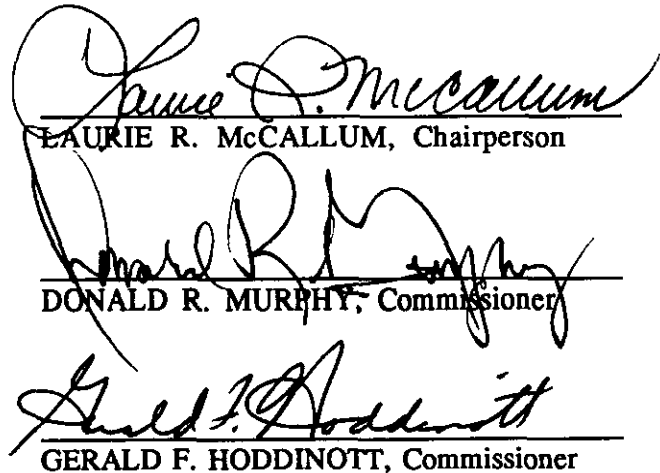 Laurie R. McCallum
LAURIE R. McCALLUM, Chairperson
Donald R. Murphy
DONALD R. MURPHY, Commissioner
Gerald F. Hoddinott
GERALD F. HODDINOTT, Commissioner